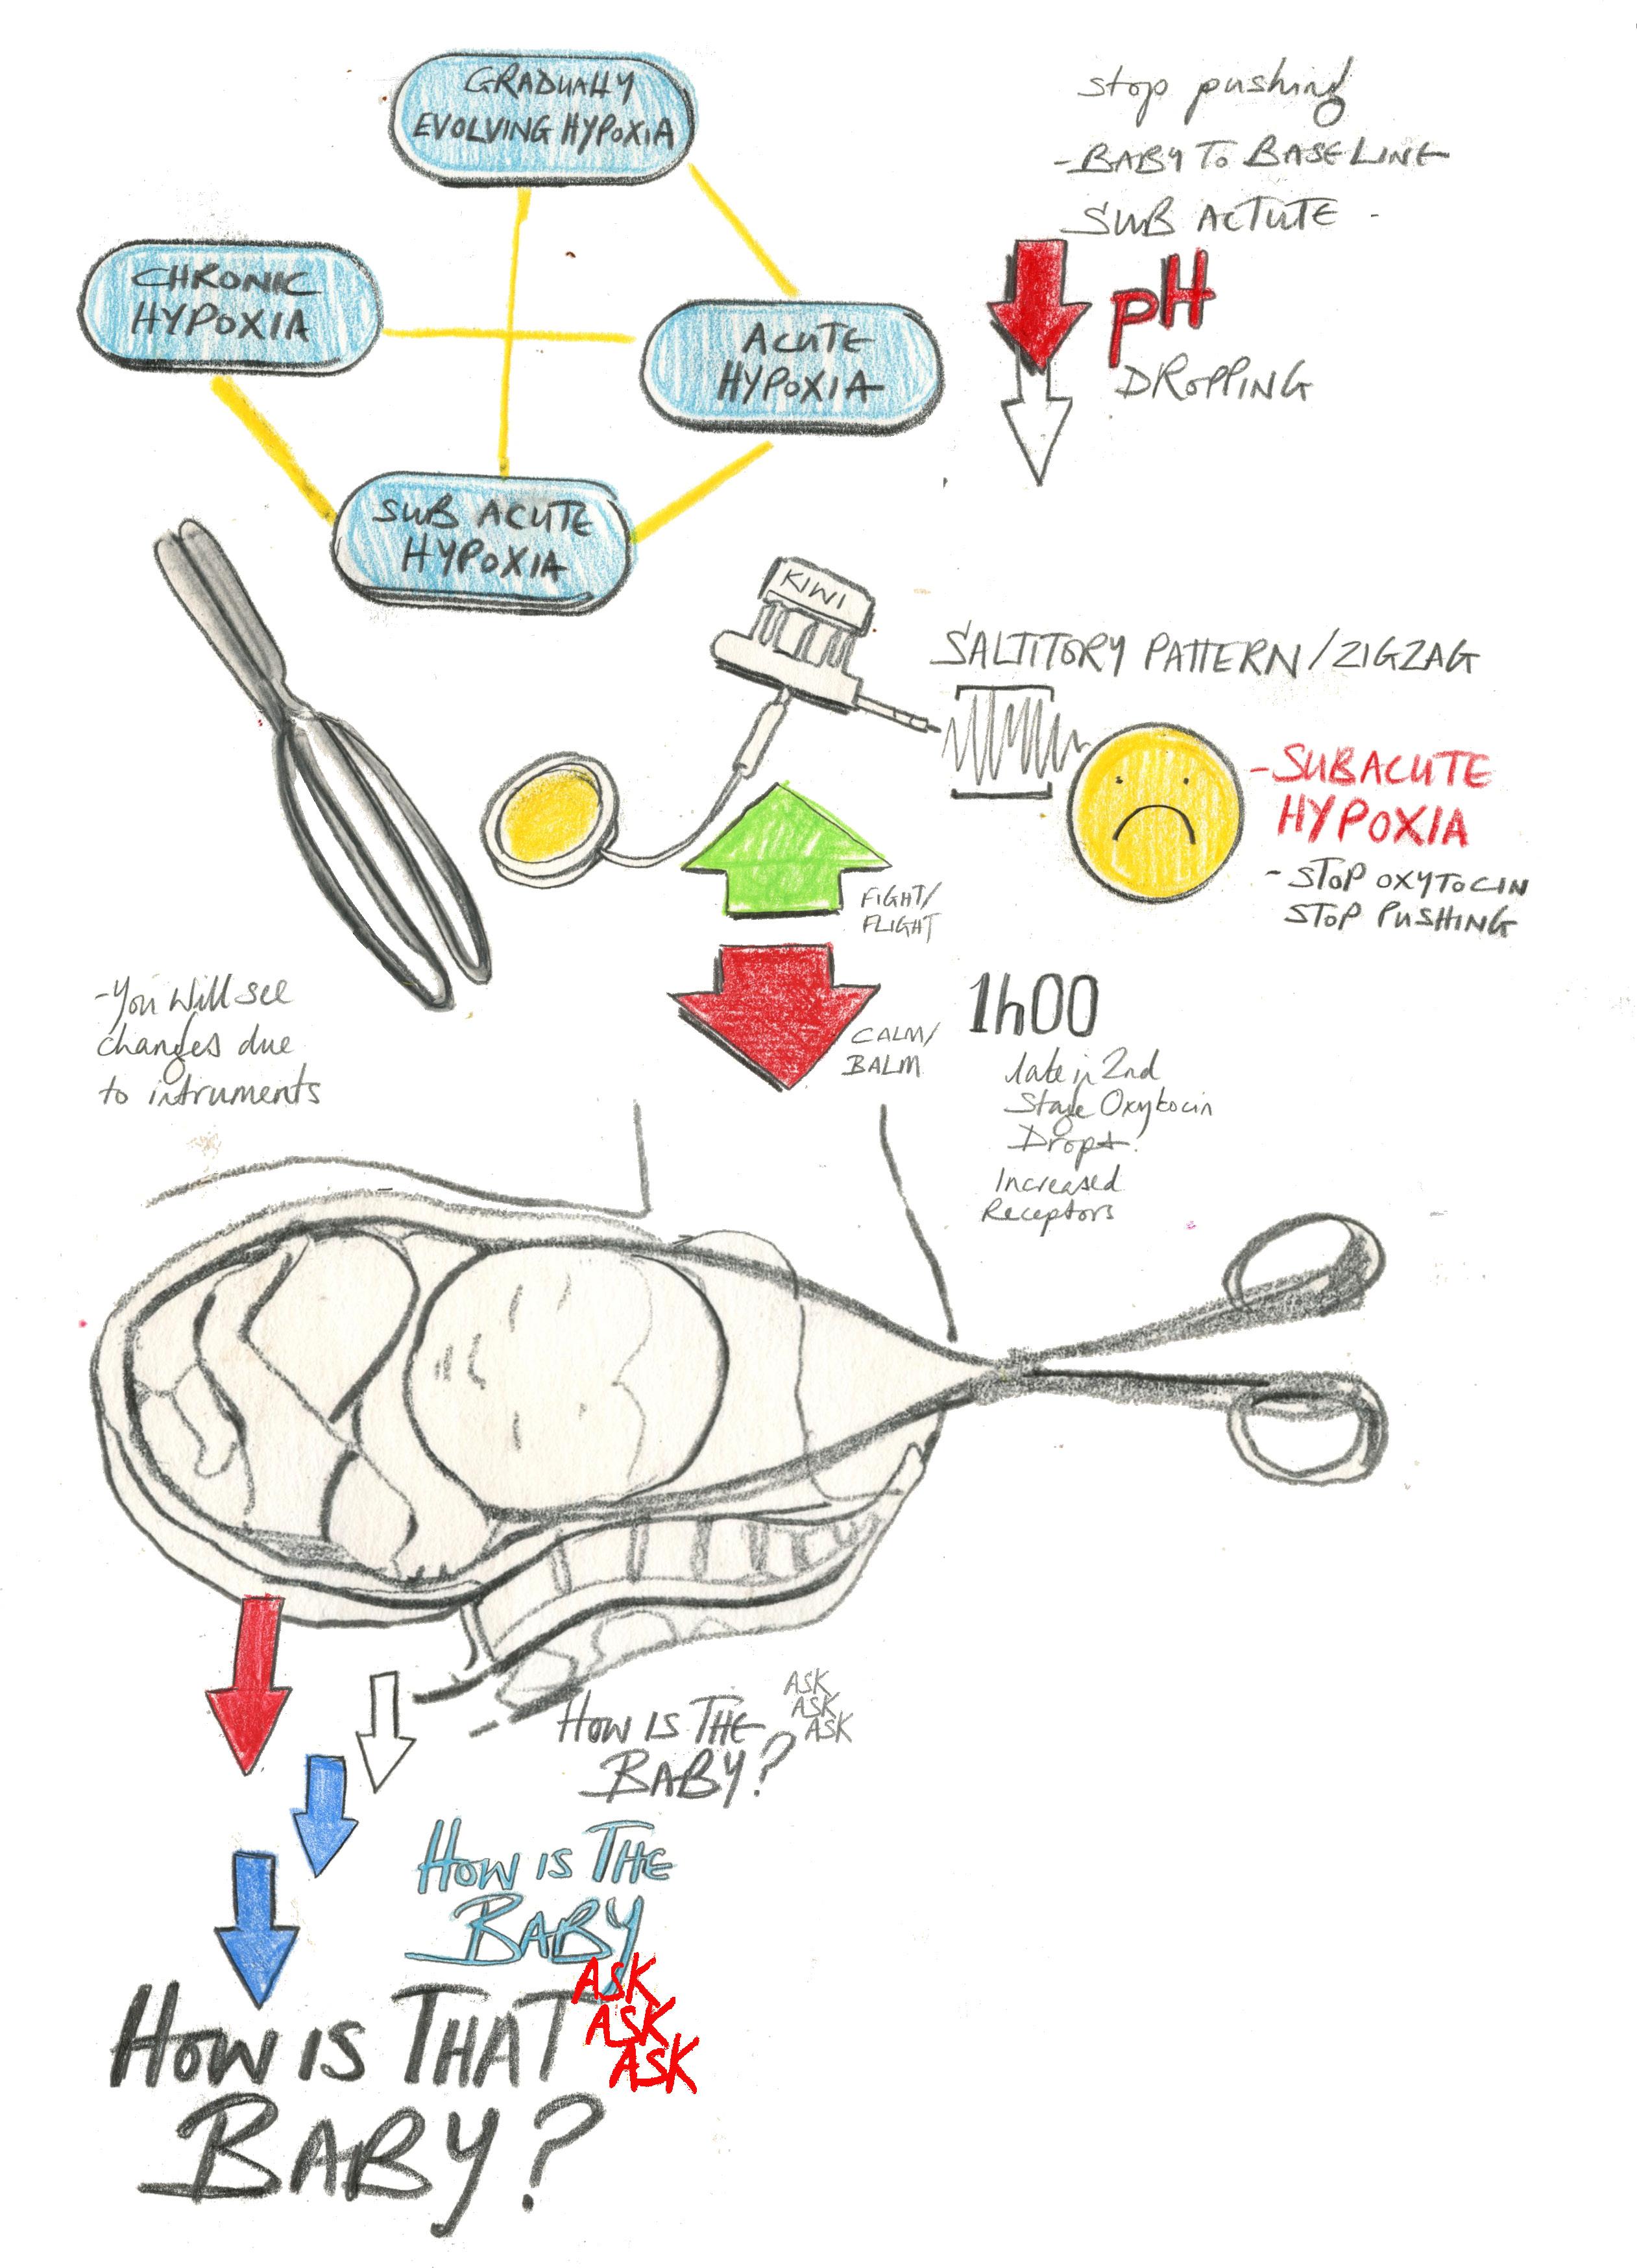 GRADUALLY
EVOLVING HYPOXIA
stop pushing
- BABY TO BASELINE
SUB ACTUTE -
CHRONIC
HYPOXIA
ACUTE
HYPOXIA
pH
DROPPING
SUB ACUTE
HYPOXIA
KIWI
SALTITORY PATTERN/ZIGZAG
- SUBACUTE
HYPOXIA
- STOP OXYTOCIN
STOP PUSHING
FIGHT/
FLIGHT
CALM/
BALM
- You Will see
changes due
to intruments
1h00
late in 2nd
Stage Oxytocin
Increased
Receptors
HOW IS THE
BABY?
ASK
ASK
ASK
HOW IS THE
BABY
ASK
ASK
ASK
HOW IS THAT
BABY?